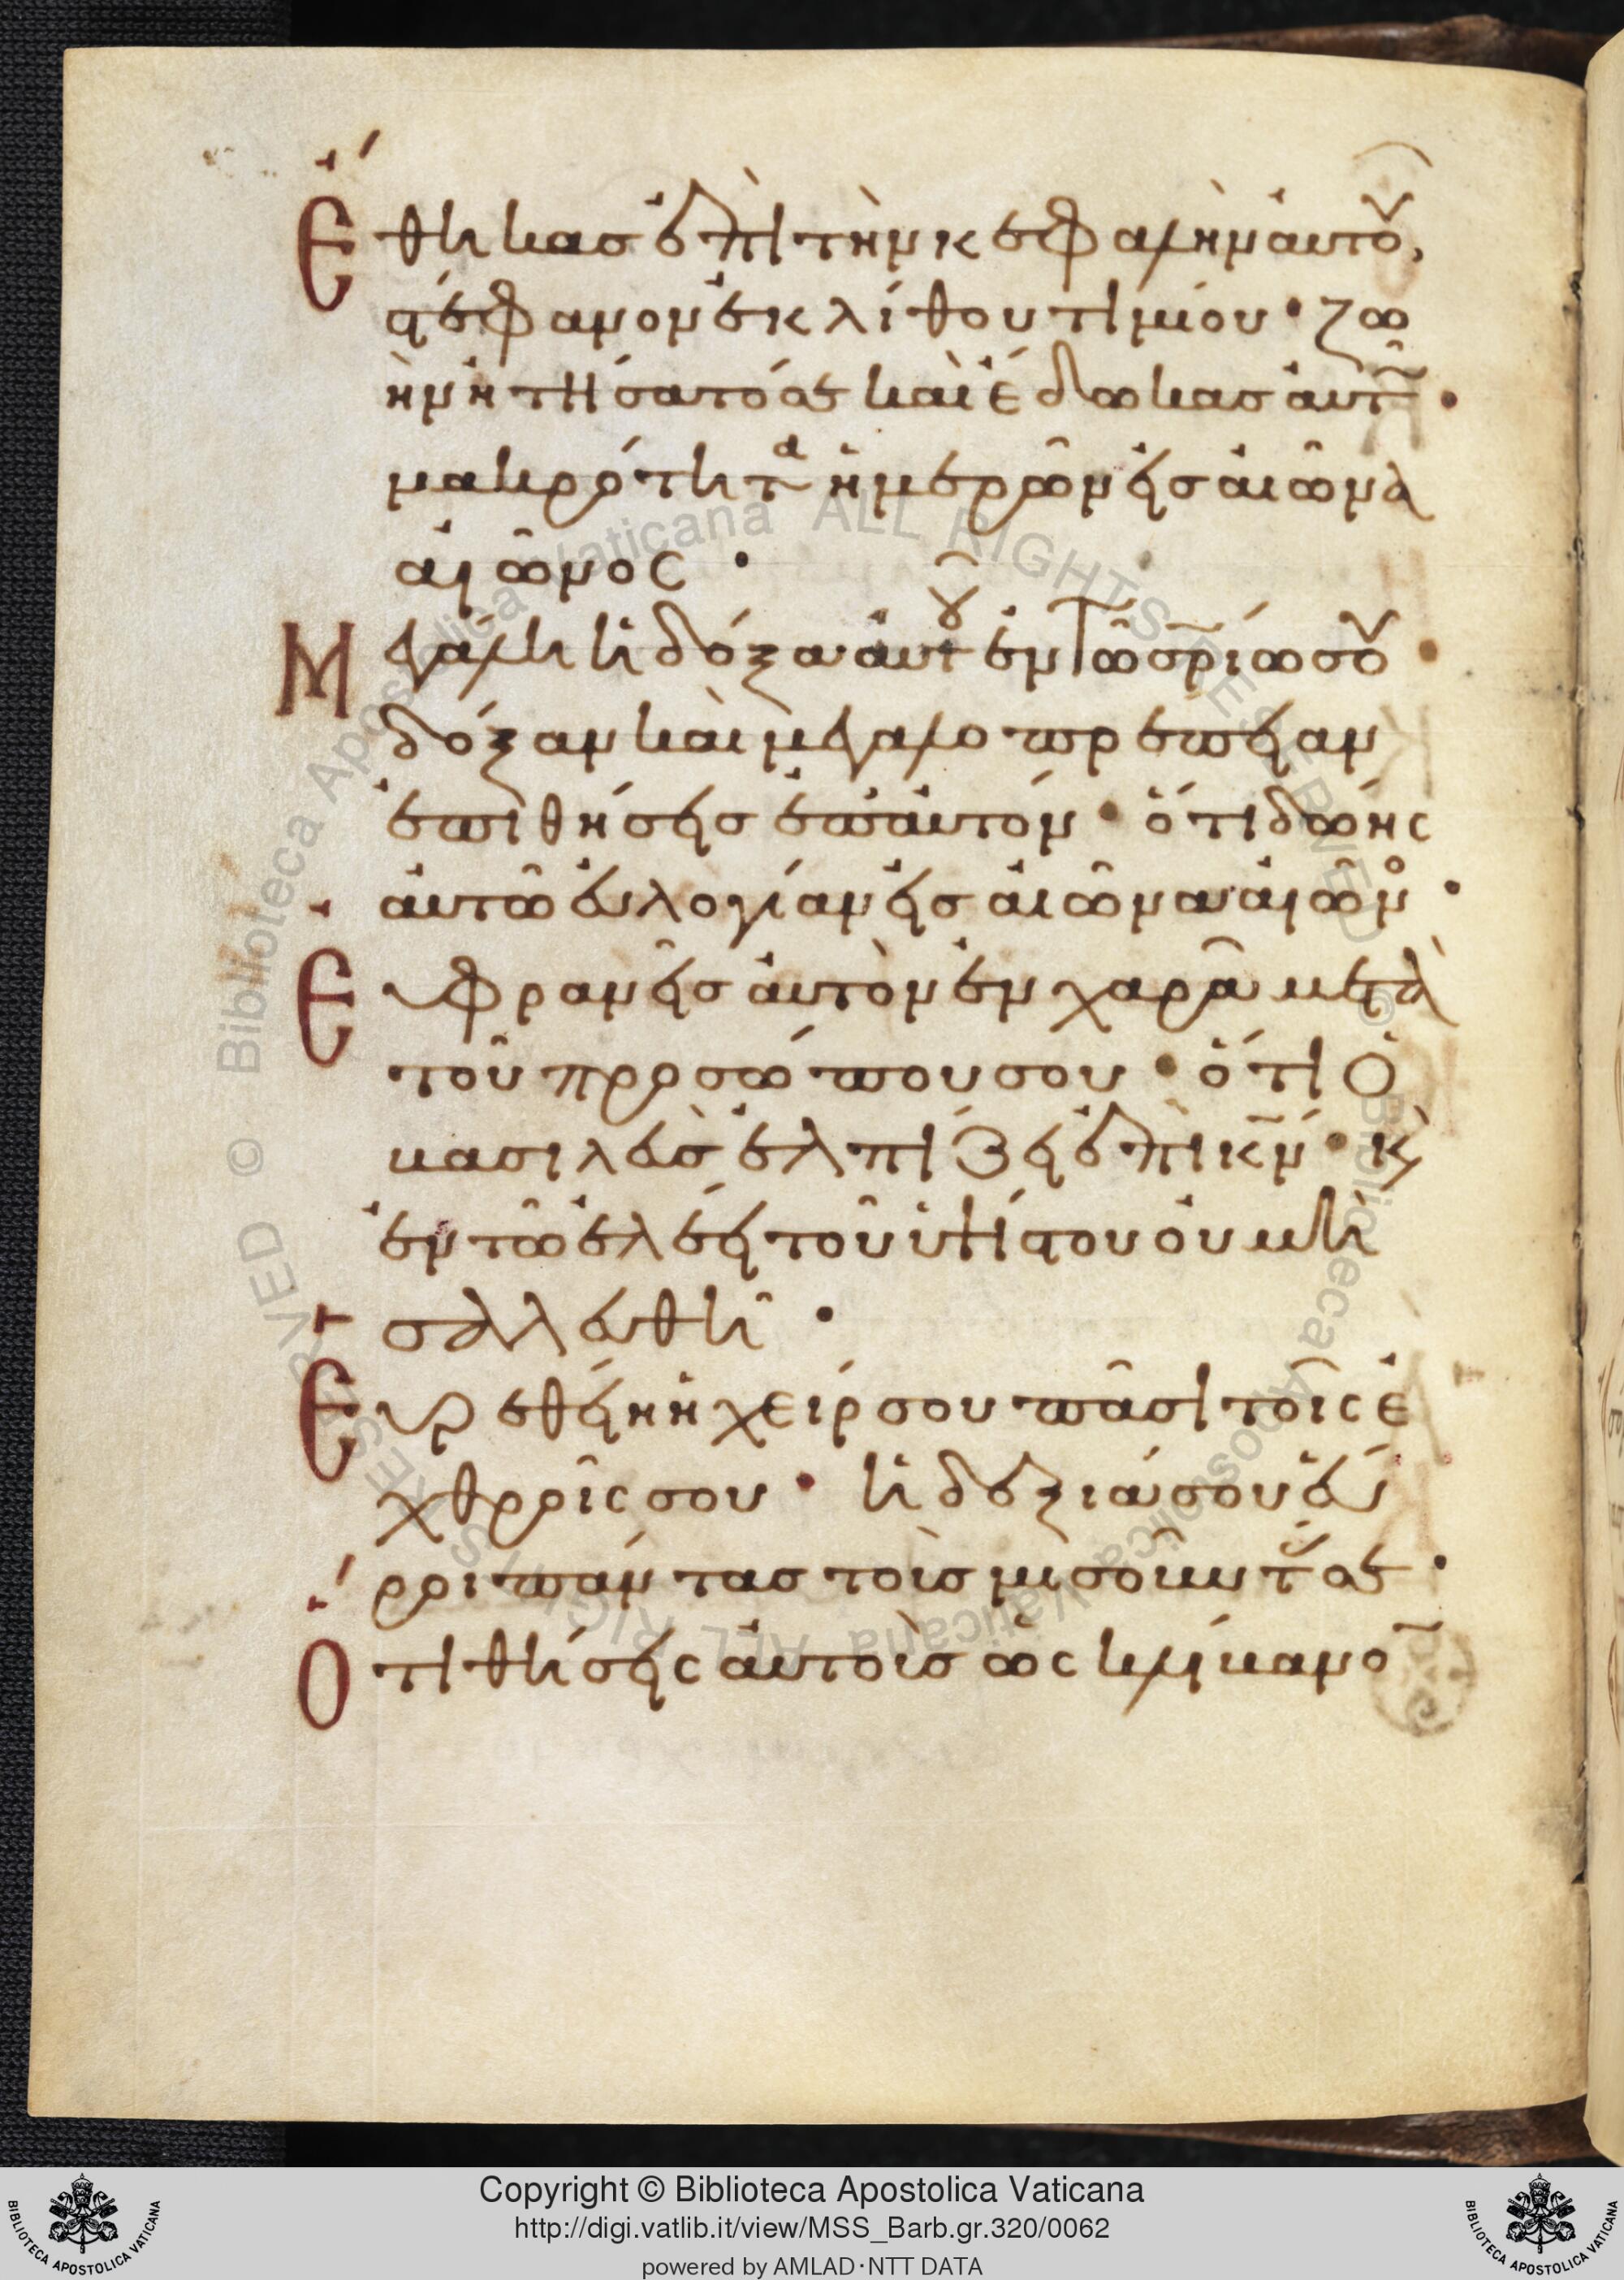 Ἔθηκασ ἐπὶ τὴν κεφαλὴν αὐτοῦ,
στέφανον ἐκ λίθου τιμίου· ζω
ὴν ἠτήσατό σε καὶ ἔδωκασ αὐτῶ·
μακρότητα ἡμερῶν εἰσ αἰῶνα
αἰῶνος·
Μεγάλη ἡ δόξα αὐτοῦ ἐν τῶ σρίω σου·
δόξαν καὶ μεγαλοπρέπειαν
ἐπιθήσεισ ἐπ' αὐτόν· ὅτι δώσης
αὐτῶ εὐλογίαν εἰσ αἰῶνα αἰῶνος·
Εὐφρανεῖσ αὐτὸν ἐν χαρᾶ μετὰ
τοῦ προσώπου σου· ὅτι ὁ
βασιλεὺσ ἐλπίζει ἐπὶ κν· κὲ
ἐν τῶ ἐλέει τοῦ ὑψίστου οὐ μὴ
σαλευθῆ·
Εὑρεθείη ἡ χείρ σου πᾶσι τοῖς ἐ
χθροῖς σου· ἡ δεξιά σου εὕ
ροι πάντας τοὺσ μισοῦντάς σε·
Ὅτι θήσεις αὐτοὺσ ὡς κλίβανον
Copyright © Biblioteca Apostolica Vaticana
http://digi.vatlib.it/view/MSS_Barb.gr.320/0062
powered by AMLAD·NTT DATA
BIBLIOTECA APOSTOLICA VATICANA
BIBLIOTECA APOSTOLICA VATICANA